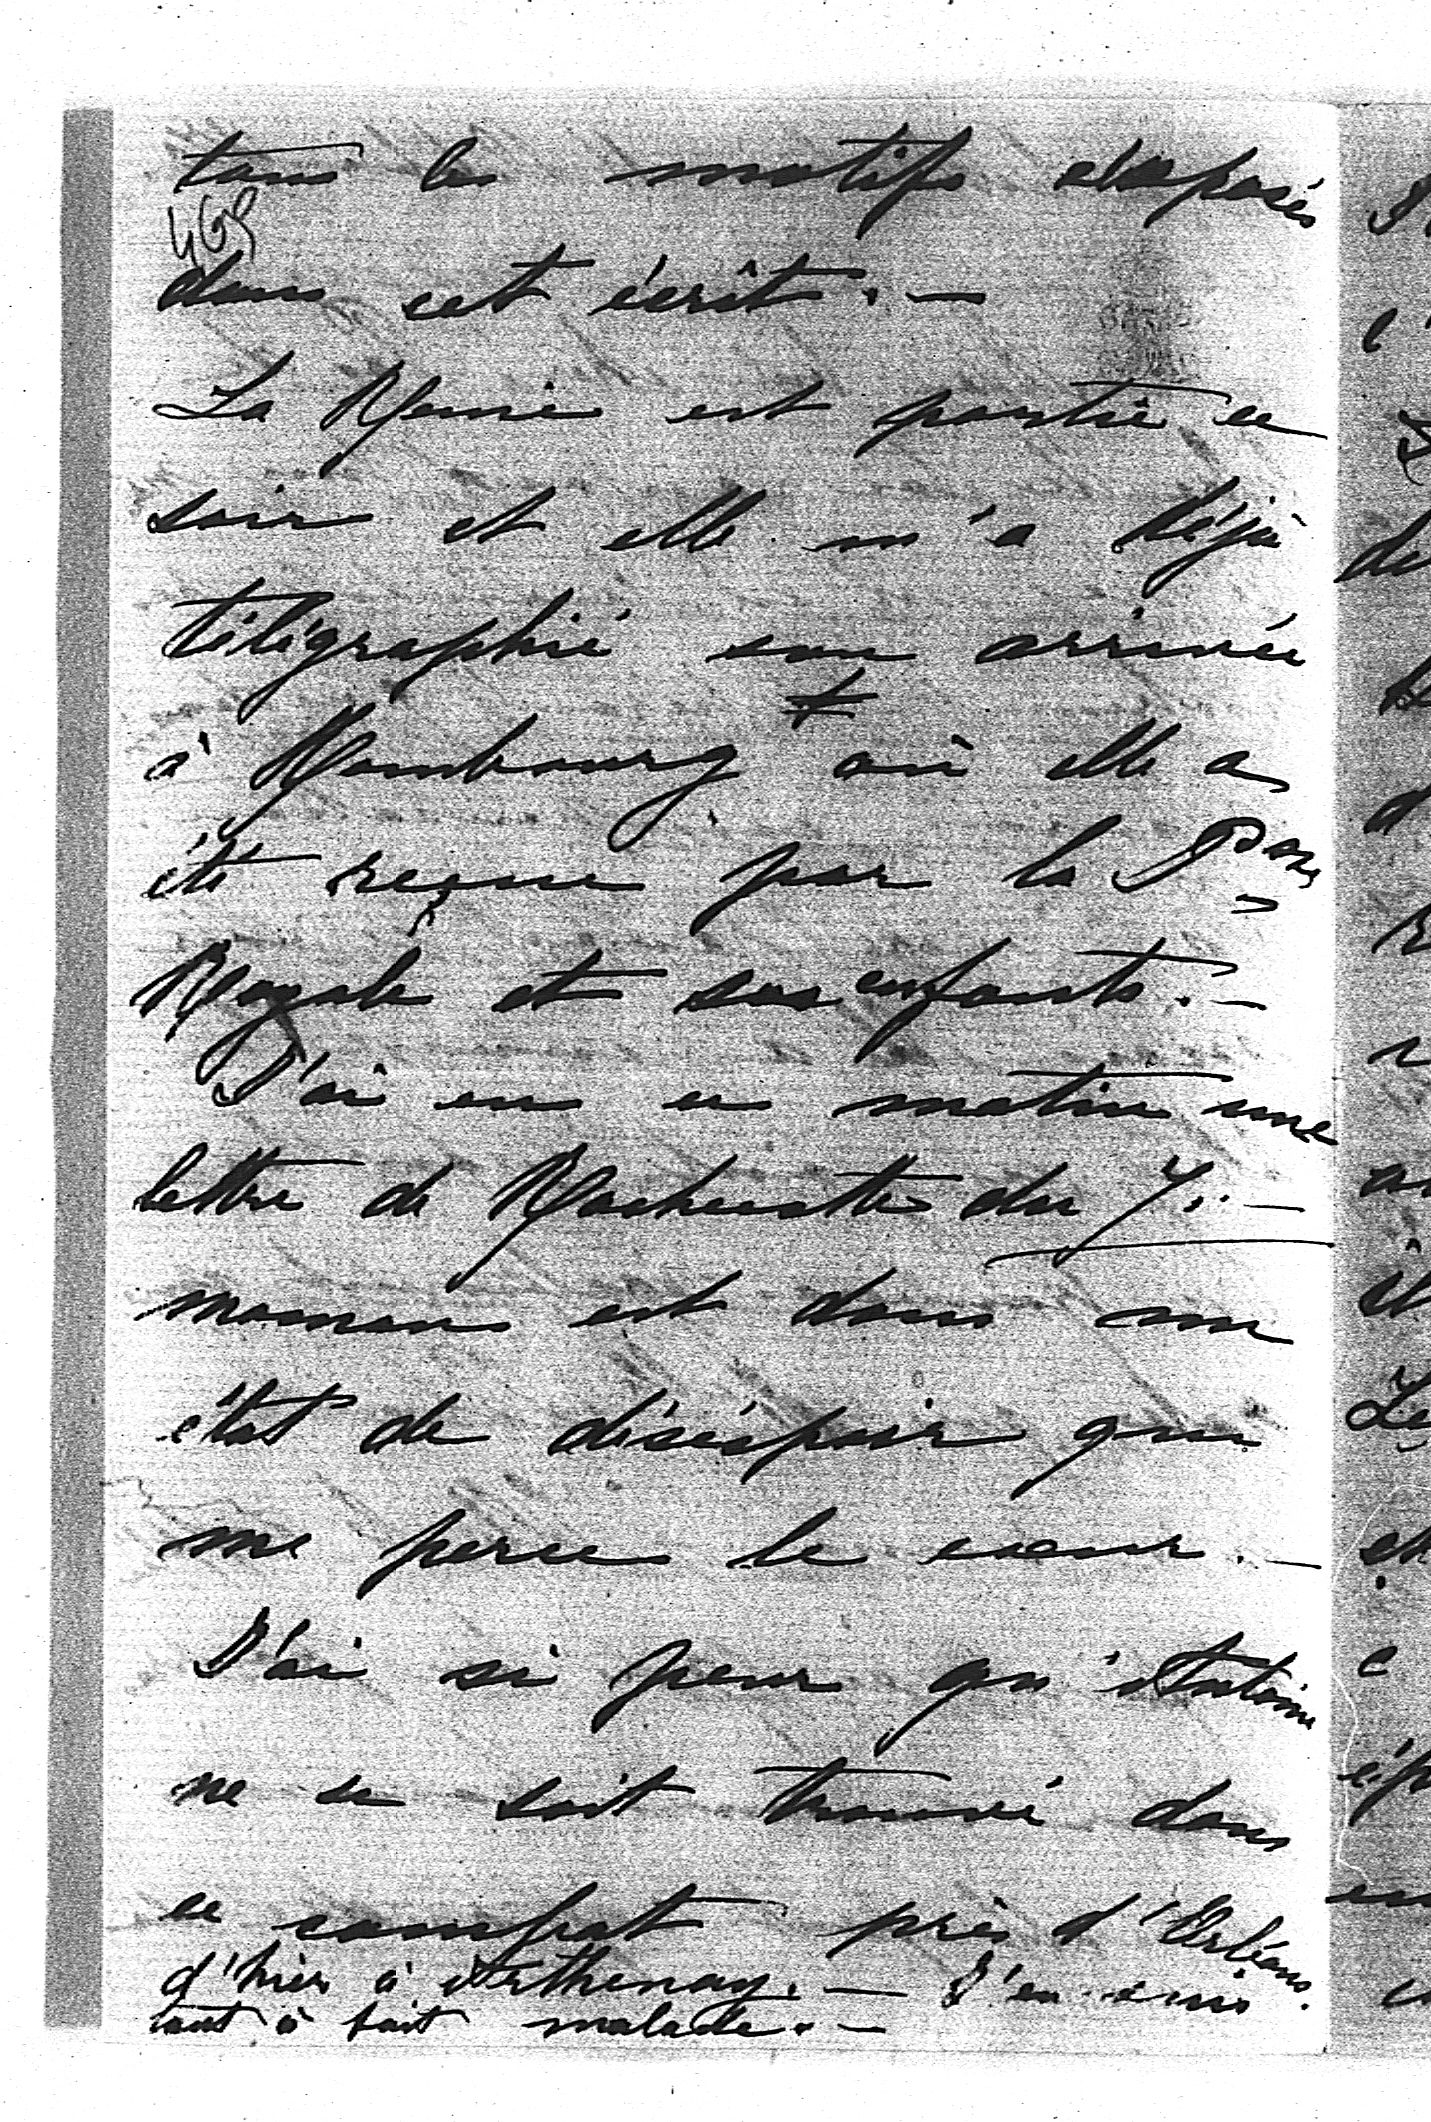 tous les motifs exposés
468
dans cet écrit. —
La Reine est partie ce
soir et elle m'a déjà
télégraphié son arrivée
à Hombourg où elle a
été reçue par la Psse
Royale et ses enfants. —
J'ai eu ce matin une
lettre de Rochecotte du 7. —
maman est dans un
état de désespoir qui
me perce le cœur. —
J'ai si peur qu'Antoine
ne se soit trouvé dans
ce combat près d'Orléans
d'hier à Arthenay. — J'en suis
tout à fait malade. —